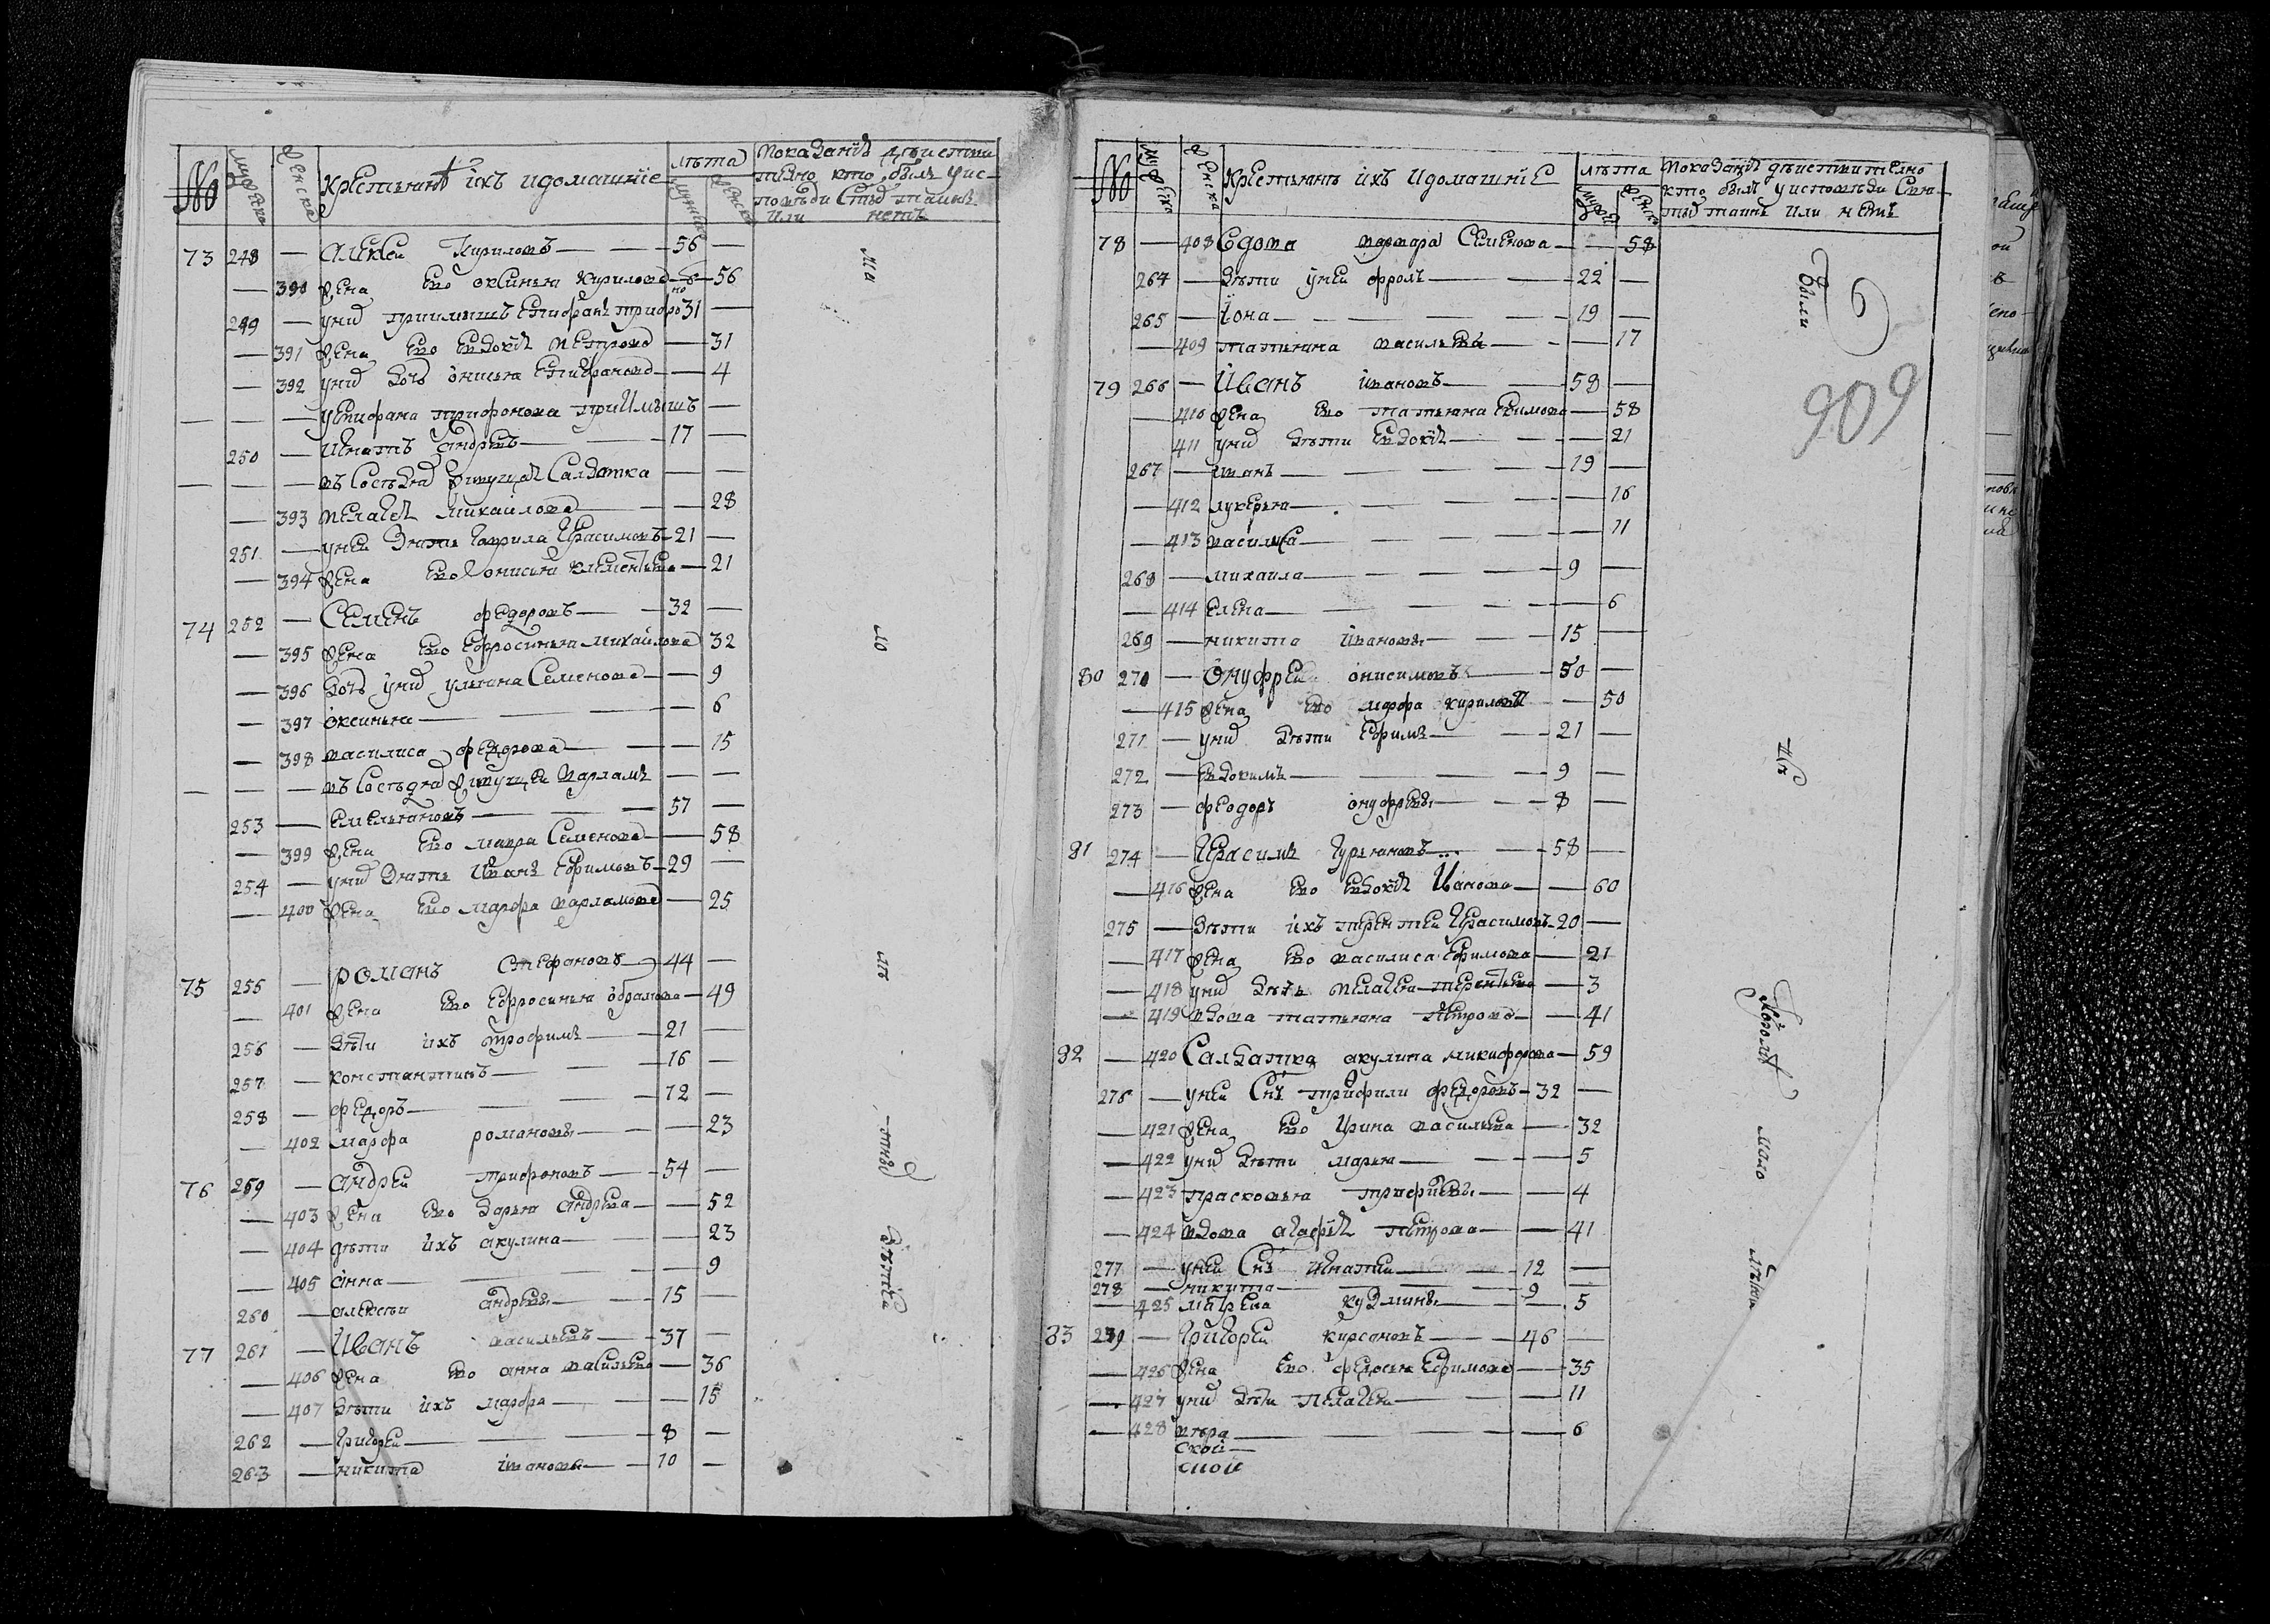 № мужска женска крестьянѣ ихъ идомашнїе лѣта мужие женск показанїѧ дѣистви
телно кто былъ уис
повѣди Стыѧ таинъ
или нетъ
73 248 — Алеѯѣи Кириловъ — 56 —
— 390 жена ево оксинья Кирилова — 56
249 — униѧ приимышъ Епифанъ трифоно 31 —
— 391 жена ево Евдокїѧ петрова — 31
— 392 униѧ дочь онисья Епифанова — 4
— — — уепифана трифонова приимышъ —
250 — Игнатъ андрѣевъ — 17 —
— — — въ Сосѣдѧ живущаѧ Салдатка — —
— 393 пелагеѧ михаилова — 28
251 — унеи зять гаврила герасимовъ 21 —
— 394 жена ево онисья клементьева — 21
74 252 — Семенъ федоровъ — 32 —
— 395 жена ево Ефросинья михайлова 32
— 396 дочь униѧ ульяна Семенова — 9
— 397 оксинья — 6
— 398 василиса федорова — 15
— — — въ Сосѣдѧ живущеи варламъ — —
253 — емельяновъ — 57 —
— 399 жена ево мавра Семенова — 58
254 — униѧ зять Иванъ Ефимовъ 29 —
— 400 жена ево марфа варламова — 25
75 255 — романъ Стефановъ 44 —
— 401 жена ево Ефросинья обрамова — 49
256 — дѣти ихъ трофимъ — 21 —
257 — константинъ — 16 —
258 — федоръ — 12 —
— 402 марфа романовы — 23
76 259 — андрѣи трифоновъ — 54 —
— 403 жена ево дарья андрѣева — 52
— 404 дѣти ихъ акулина — 23
— 405 анна — 9
260 — алексѣи андрѣевы — 15 —
77 261 — Иванъ васильевъ — 37 —
— 406 жена ево анна васильева — 36
— 407 дѣти ихъ марфа — 15
262 — григореи — 8 —
263 — никита ивановы — 10 —
№ мужска женска крестьянъ ихъ идомашнїе лѣта мужие женск показанїѧ дѣиствително
кто былъ уисповѣди Свѧ
тыѧ таинъ или нетъ
78 — 408 Вдова варвара Семенова — 58
264 — дѣти унеи фролъ — 22 —
265 — иона — 19 —
— 409 татьяна васильевы — 17
79 266 — Иванъ ивановъ — 58 —
— 410 жена ево татьяна Ефимова — 58
411 униѧ дѣти Евдокїѧ — 21
267 — иванъ — 19 —
— 412 лукерья — 16
— 413 василиса — 11
268 — михаила — 9 —
— 414 елена — 6
269 — никита ивановы — 15 —
80 270 — онуфреи онисимовъ — 50 —
— 415 жена ево марфа кирилова — 50
271 — униѧ дѣти Ефимъ — 21 —
272 — евдокимъ — 9 —
273 — феодоръ онуфрѣевы — 8 —
81 274 — Герасимъ гурьяновъ — 58 —
— 416 жена ево Евдокїѧ Иванова — 60
275 — дѣти ихъ терентеи герасимовъ 20 —
— 417 жена ево василиса Ефимова — 21
— 418 униѧ дѣть пелагеи терентьева — 3
— 419 вдова татьяна петрова — 41
82 — 420 Салдатка акулина никифорова — 59
276 — унеи Снъ трифили федоровъ 32 —
— 421 жена ево ирина васильева — 32
— 422 униѧ дѣти марья — 5
— 423 прасковья трифилевы — 4
— 424 вдова агафїѧ петрова — 41
277 — унеи Снъ игнатеи — 12 —
278 — никита — 9 —
— 425 матрена кузмины — 5
83 279 — Григореи кирсановъ — 46 —
— 426 жена ево федосья Ефимова — 35
— 427 униѧ дѣти пелагеи — 11
— 428 вѣра — 6
скои
были
909
мало
лѣти